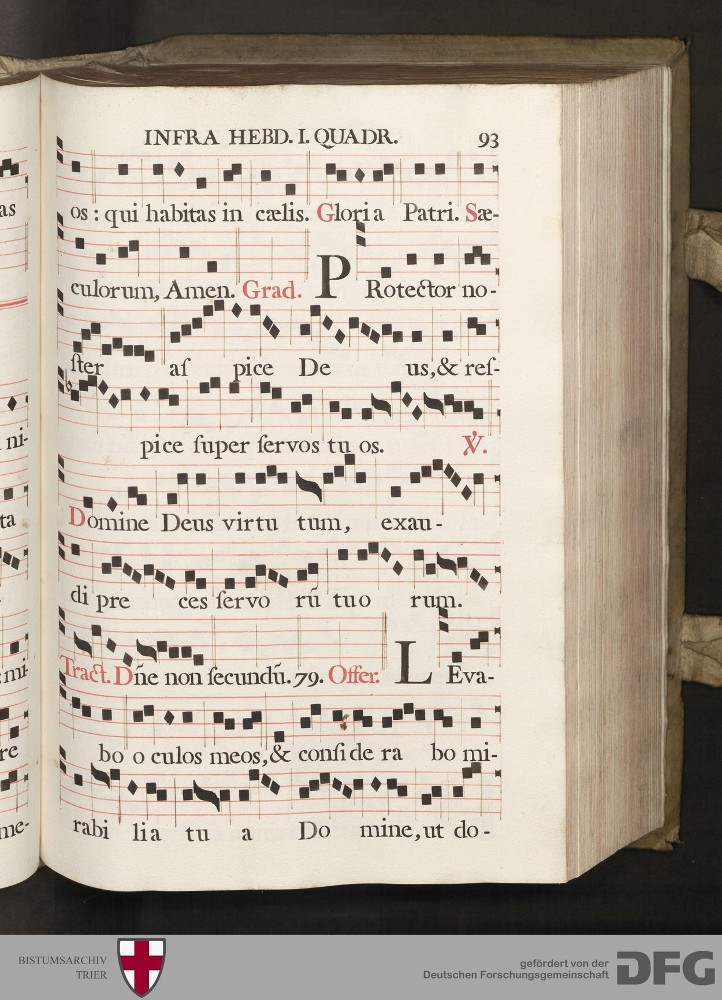 INFRA HEBD. I. QUADR. 93
os: qui habitas in cælis. Gloria Patri. Sæ-
culorum, Amen. Grad. PRotector no-
ſter aſ pice De us, & reſ-
pice ſuper ſervos tu os. ℣.
Domine Deus virtu tum, exau-
di pre ces ſervo rũ tuo rum.
Tract. Dñe non ſecundũ. 79. Offer. LEva-
bo o culos meos, & conſide ra bo mi-
rabi lia tu a Do mine, ut do-
as
ni-
ta
mi-
re
me-
BISTUMSARCHIV
TRIER
gefördert von der
Deutschen Forschungsgemeinschaft
DFG